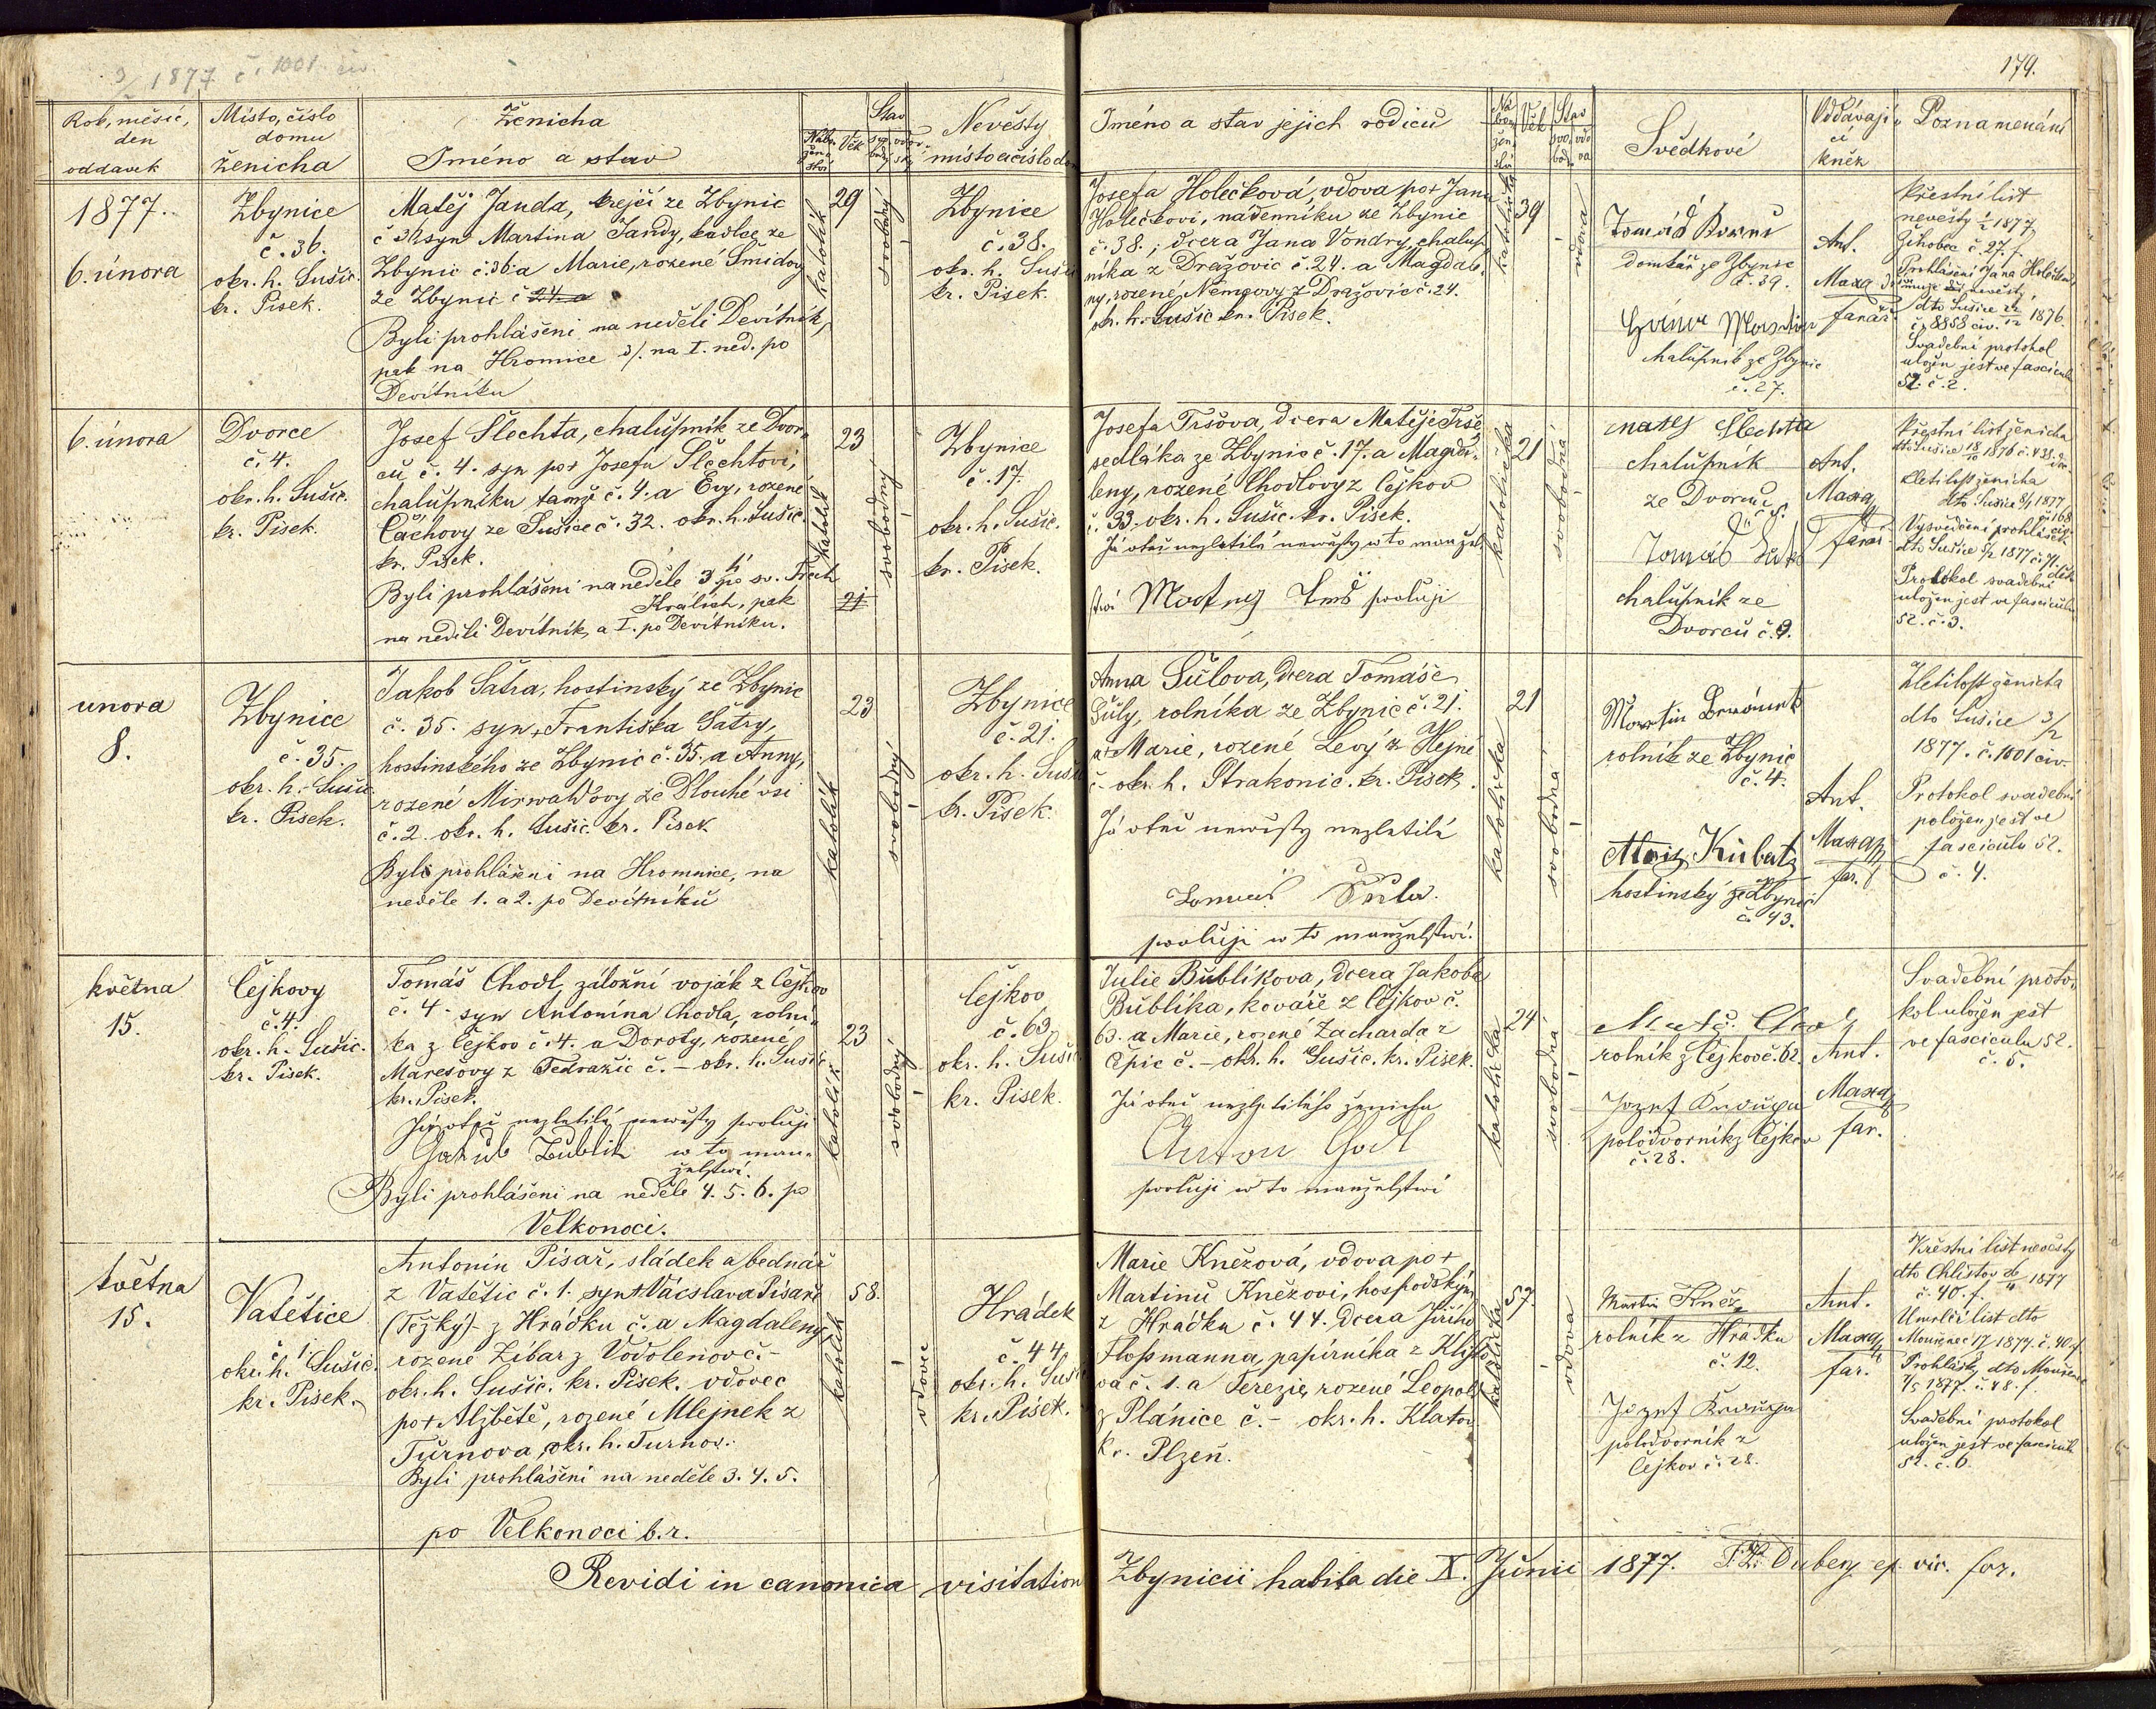 1877 č. 1001 civ.
179.
Rok, měsíc,
den
oddavek
Místo, číslo
domu
ženicha
Ženicha
Jméno a stav
Nábo-
žen-
ství
Věk
Stav
Nevěsty
místo a číslo do
Jméno a stav jejich rodičů
Ná
bo-
žen-
ství
Věk
Stav
Svědkové
Oddávají-
cí
kněz
Poznamenání
1877.
6. února
Zbynice
č. 36.
okr. h. Sušic.
kr. Písek.
Matěj Janda, krejčí ze Zbynic
č 36 syn Martina Jandy, kadlce ze
Zbynic č. 36 a Marie, rozené Šmídovy
ze Zbynic č 24 a
Byli prohlášeni na neděli Devítník,
pak na Hromice 3/. na I. ned. po
Devítníku
katolík
29
svobodný
Zbynice
č. 38.
okr. h. Suši
kr. Písek.
Josefa Holečková, vdova po + Janu
Holečkovi, nádenníku ze Zbynic
č. 38., dcera Jana Vondry, chalup-
níka z Dražovic č. 24. a Magdale-
ny, rozené Němcovy z Dražovic č. 24.
okr. h. Sušic kr. Písek.
katolička
39
vdova
Tomáš
domkář ze Zbynic
č. 39.
Martin
chalupník ze Zbynic
č. 27.
Ant.
Maxa
farář.
Křestní list
nevěsty ½ 1877
Žihobec č 27. f.
Prohlášení Jana Holečka
nevěsty
dto Sušice 1876
č. 8858 civ.
Svadební protokol
uložen jest ve fascicul
52. č. 2.
6. února
Dvorce
č. 4.
okr. h. Sušic.
kr. Písek.
Josef Šlechta, chalupník ze Dvor-
ců č. 4. syn po + Josefu Šlechtovi,
chalupníku tamže č. 4. a Evy, rozené
Čáchovy ze Sušice č. 32. okr. h. Sušic.
kr. Písek.
Byli prohlášeni na neděle 3 po sv. Třech
Králích, pak
na neděli Devítník, a I. po Devítníku.
katolík
23
21
svobodný
Zbynice
č. 17.
okr. h. Sušic.
kr. Písek.
Josefa Tršova, dcera Matěje Trše
sedláka ze Zbynic č. 17. a Magda-
leny, rozené Chodlovy z Čejkov
č. 33. okr. h. Sušic. kr. Písek.
Já otec nezletilé newěsty w to manžel-
stwí powoluji
katolička
21
svobodná
Matěj Šlechta
chalupník
ze Dvorců
Tomáš
chalupník ze
Dvorců č. 9.
Ant.
Maxa
farář
Křestní list ženicha
dto Sušice 1876 č. 438.
Zletilost ženicha
dto Sušice 8/1 1877
č. 168
Vysvědčení prohlášek
dto Sušice 5/2 1877 č. 71.
Protokol svadební
uložen jest ve fasciculu
52. č. 3.
unora
8.
Zbynice
č. 35.
okr. h. Sušic
kr. Písek.
Jakob Šatra, hostinský ze Zbynic
č. 35. syn + Františka Šatry,
hostinského ze Zbynic č. 35. a Anny,
rozené Mirwaldovy ze Dlouhé vsi
č. 2. okr. h. Sušic. kr. Písek
Byli prohlášeni na Hromnice, na
neděle 1. a 2. po Devítníků
katolík
23
svobodný
Zbynice
č. 21.
okr. h. Suši
kr. Písek.
Anna Šůlova, dcera Tomáše
Šůly, rolníka ze Zbynic č. 21.
a + Marie, rozené Levý z Hejné
č - okr. h. Strakonic. kr. Písek.
Já otec newěsty nezletilé
Tomáš Šula.
powoluji w to manželstwí.
katolička
21
svobodná
Martin
rolník ze Zbynic
č. 4.
Alois Kubat
hostinský ze Zbynic
č. 43.
Ant.
Maxa
far.
Zletilost ženicha
dto Sušice 3/2
1877. č. 1001 civ.
Protokol svadební
položen jest ve
fasciculu 52.
č. 4.
května
15.
Čejkovy
č. 4.
okr. h. Sušic.
kr. Písek.
Tomáš Chodl, záložní voják z Čejkov
č. 4. syn Antonína Chodla, rolní-
ka z Čejkov č. 4. a Doroty, rozené
Marešovy z Tedražic č. - okr. h. Sušic.
kr. Písek.
Já otec nezletilé newěsty powoluji
Jakub Bublik w to man-
želstwí.
Byli prohlášeni na neděle 4. 5. 6. po
Velkonoci.
katolík
23
svobodný
Čejkov
č. 63.
okr. h. Sušic
kr. Písek.
Julie Bublíkova, dcera Jakoba
Bublíka, kováře z Čejkov č.
63. a Marie, rozené Zacharda z
Čpic č. - okr. h. Sušic. kr. Písek.
Já otec nezletilého ženicha
Anton Chodl
powoluji w to manželstwí
katolička
24
svobodná
rolník z Čejkov č. 62.
Jozef
polodvorník z Čejkov
č. 28.
Ant.
Maxa
far.
Svadební proto-
kol uložen jest
ve fasciculu 52.
č. 5.
května
15.
Vatětice
č. 1.
okr. h. Sušic.
kr. Písek.
Antonín Písař, sládek a bednář
z Vatětic č. 1. syn + Vácslava Písaře
(Těžký) z Hrádku č. a Magdaleny
rozené Žibar z Vodolenov č. -
okr. h. Sušic. kr. Písek. vdovec
po + Alžbětě, rozené Mlejnek z
Turnova, okr. h. Turnov.
Byli prohlášeni na neděle 3. 4. 5.
po Velkonoci b. r.
katolík
58.
vdovec
Hrádek
č. 44.
okr. h. Suši
kr. Písek.
Marie Knězová, vdova po +
Martinu Knězovi, hospodským
z Hrádku č. 44. dcera Jiřího
Flossmanna, papírníka z Klisto-
va č. 1. a Terezie, rozené Leopold
z Plánice č. - okr. h. Klatov
kr. Plzeň.
katolička
57.
vdova
Martin Kněz
rolník z Hrádku
č. 12.
Jozef
polodvorník z
Čejkov č. 28.
Ant.
Maxa
far.
Křestní list nevěsty
dto Chlistov 1877
č. 40. f.
Umrlčí list dto
Mouřenec 1877. č. 40. f.
Prohlášky dto Mouřenec
1877. č. 48. f.
Svadební protokol
uložen jest ve fascicul
52. č. 6.
Revidi in canonica visitation Zbynicii habita die X. Junii 1877.